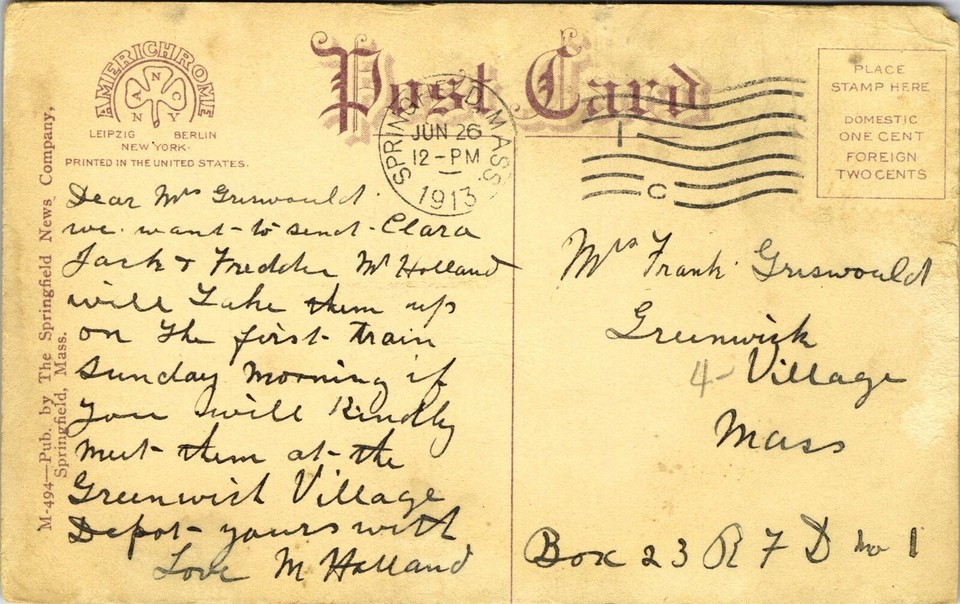 AMERICHROME
A N N C O N Y
LEIPZIG BERLIN
NEW YORK
PRINTED IN THE UNITED STATES.
Post Card
SPRINGFIELD, MASS.
JUN 26
12-PM
1913
1
C
PLACE
STAMP HERE
DOMESTIC
ONE CENT
FOREIGN
TWO CENTS
M-494—Pub. by The Springfield News Company,
Springfield, Mass.
Dear Mrs Griswould
we want to send Clara
Jack & Freddie Mr Holland
will Take them up
on the first train
Sunday Morning if
you will Kindly
meet them at the
Greenwich Village
Depot yours with
Love M Holland
Mrs Frank Griswould
Greenwick
4- Village
Mass
Box 23 R F D No 1